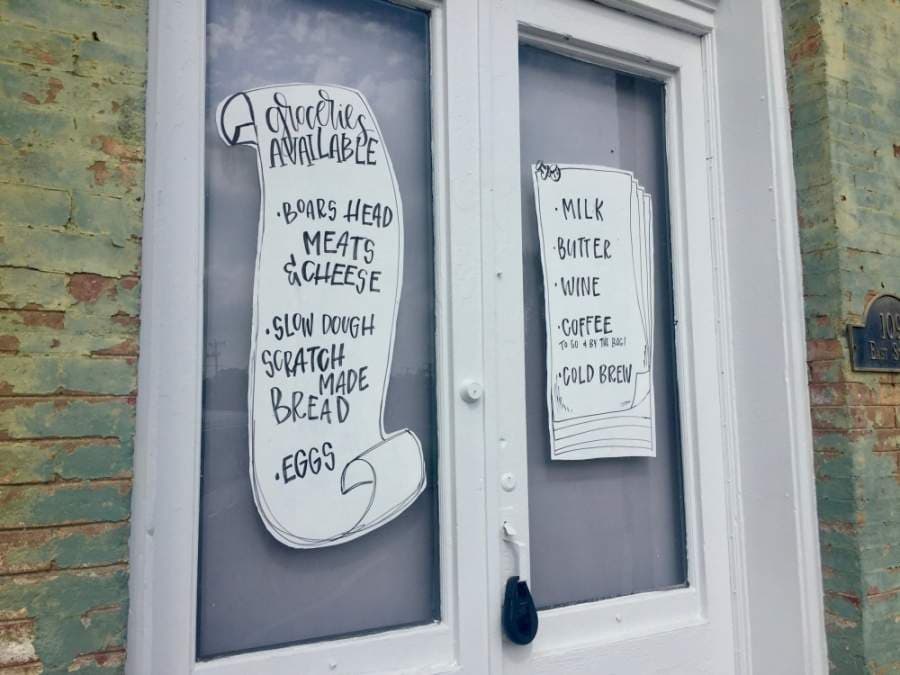 groceries
AVAILABLE
·BOARS HEAD
MEATS
& CHEESE
·SLOW DOUGH
SCRATCH
MADE
BREAD
·EGGS
·MILK
·BUTTER
·WINE
·COFFEE
TO GO & BY THE BAG!
·COLD BREW
10
EAST S